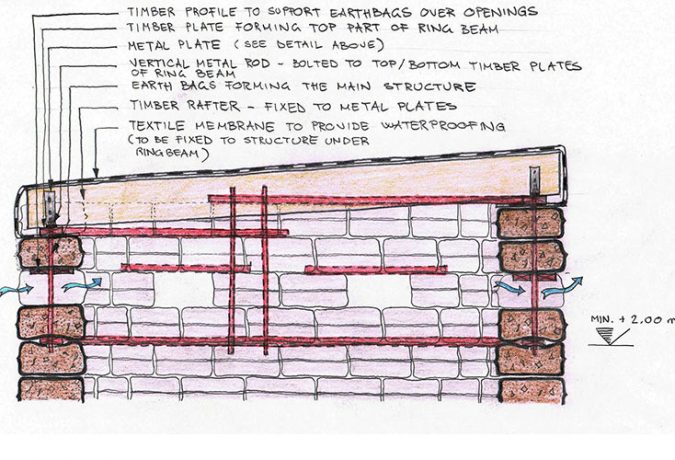 TIMBER PROFILE TO SUPPORT EARTHBAGS OVER OPENINGS
TIMBER PLATE FORMING TOP PART OF RING BEAM
METAL PLATE (SEE DETAIL ABOVE)
VERTICAL METAL ROD - BOLTED TO TOP/BOTTOM TIMBER PLATES
OF RING BEAM
EARTH BAGS FORMING THE MAIN STRUCTURE
TIMBER RAFTER - FIXED TO METAL PLATES
TEXTILE MEMBRANE TO PROVIDE WATERPROOFING
(TO BE FIXED TO STRUCTURE UNDER
RINGBEAM)
MIN. + 2,00 m